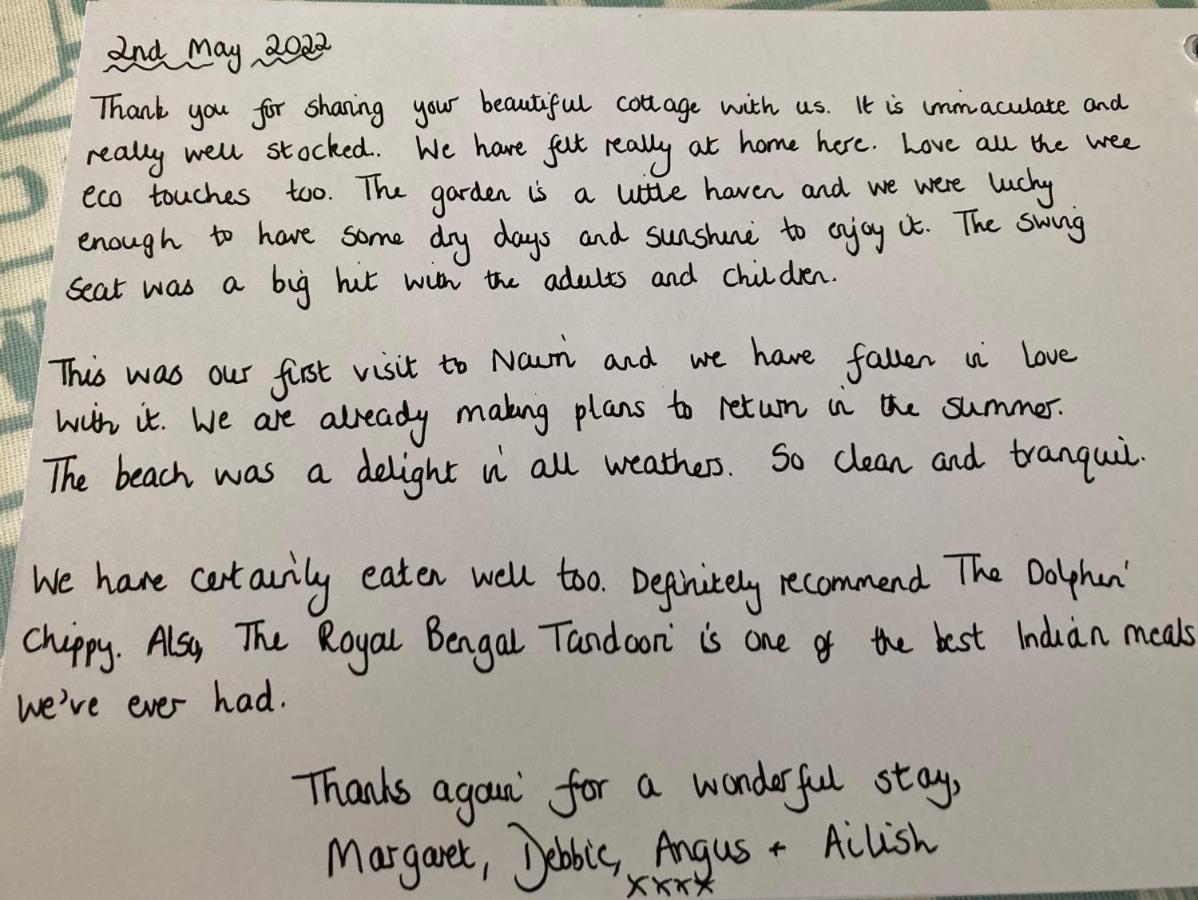 2nd May 2022
Thank you for sharing your beautiful cottage with us. It is immaculate and
really well stocked. We have felt really at home here. Love all the wee
eco touches too. The garden is a little haven and we were lucky
enough to have some dry days and sunshine to enjoy it. The swing
seat was a big hit with the adults and children.
This was our first visit to Nairn and we have fallen in love
with it. We are already making plans to return in the summer.
The beach was a delight in all weathers. So clean and tranquil.
We have certainly eaten well too. Definitely recommend The Dolphin
Chippy. Also, The Royal Bengal Tandoori is one of the best Indian meals
we've ever had.
Thanks again for a wonderful stay,
Margaret, Debbie, Angus + Ailish
xxxx